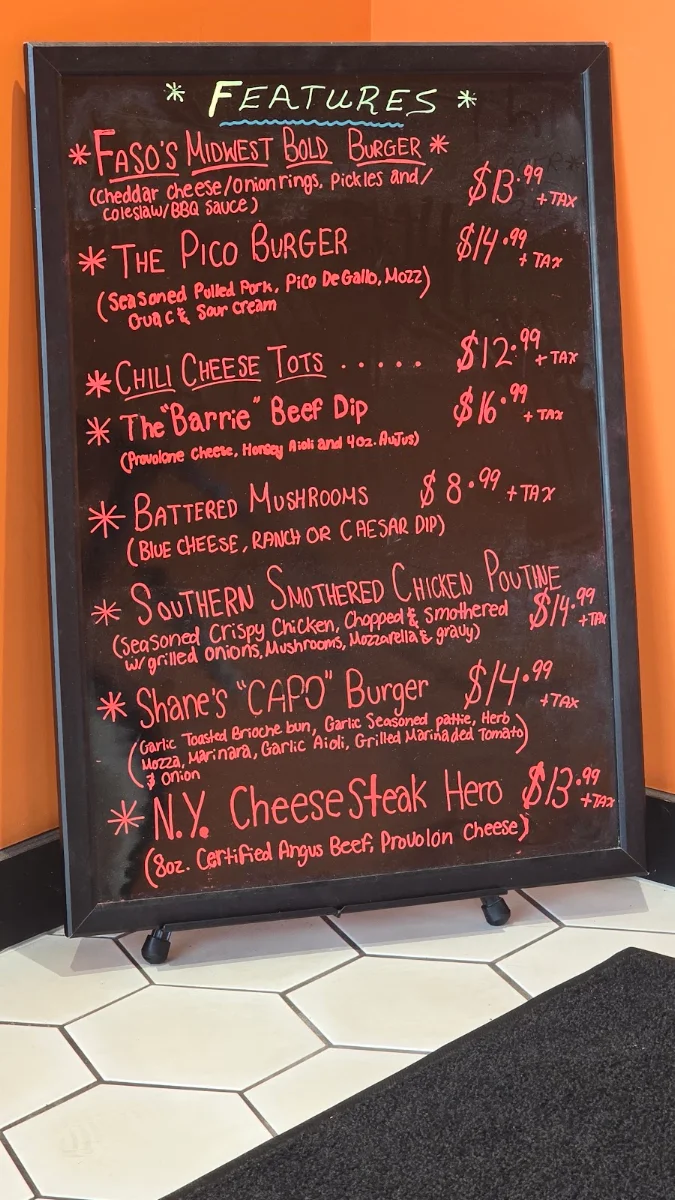 * FEATURES *
*FASO'S MIDWEST BOLD BURGER*
(Cheddar cheese/onion rings, Pickles and/ $13.99 + TAX
coleslaw/BBQ Sauce)
*THE PICO BURGER $14.99 + TAX
(Seasoned Pulled Pork, Pico De Gallo, Mozz)
Guac & Sour Cream
*CHILI CHEESE TOTS ..... $12.99 + TAX
*The "Barrie" Beef Dip $16.99 + TAX
(Provolone Cheese, Horsey Aioli and 4oz. AuJus)
*BATTERED MUSHROOMS $8.99 + TAX
(BLUE CHEESE, RANCH OR CAESAR DIP)
*SOUTHERN SMOTHERED CHICKEN POUTINE
(Seasoned Crispy Chicken, Chopped & Smothered $14.99 + TAX
w/grilled onions, Mushrooms, Mozzarella & gravy)
*Shane's "CAPO" Burger $14.99 + TAX
(Garlic Toasted Brioche bun, Garlic Seasoned pattie, Herb
Mozza, Marinara, Garlic Aioli, Grilled Marinaded Tomato)
& Onion
*N.Y. Cheese Steak Hero $13.99 + TAX
(8oz. Certified Angus Beef, Provolon cheese)